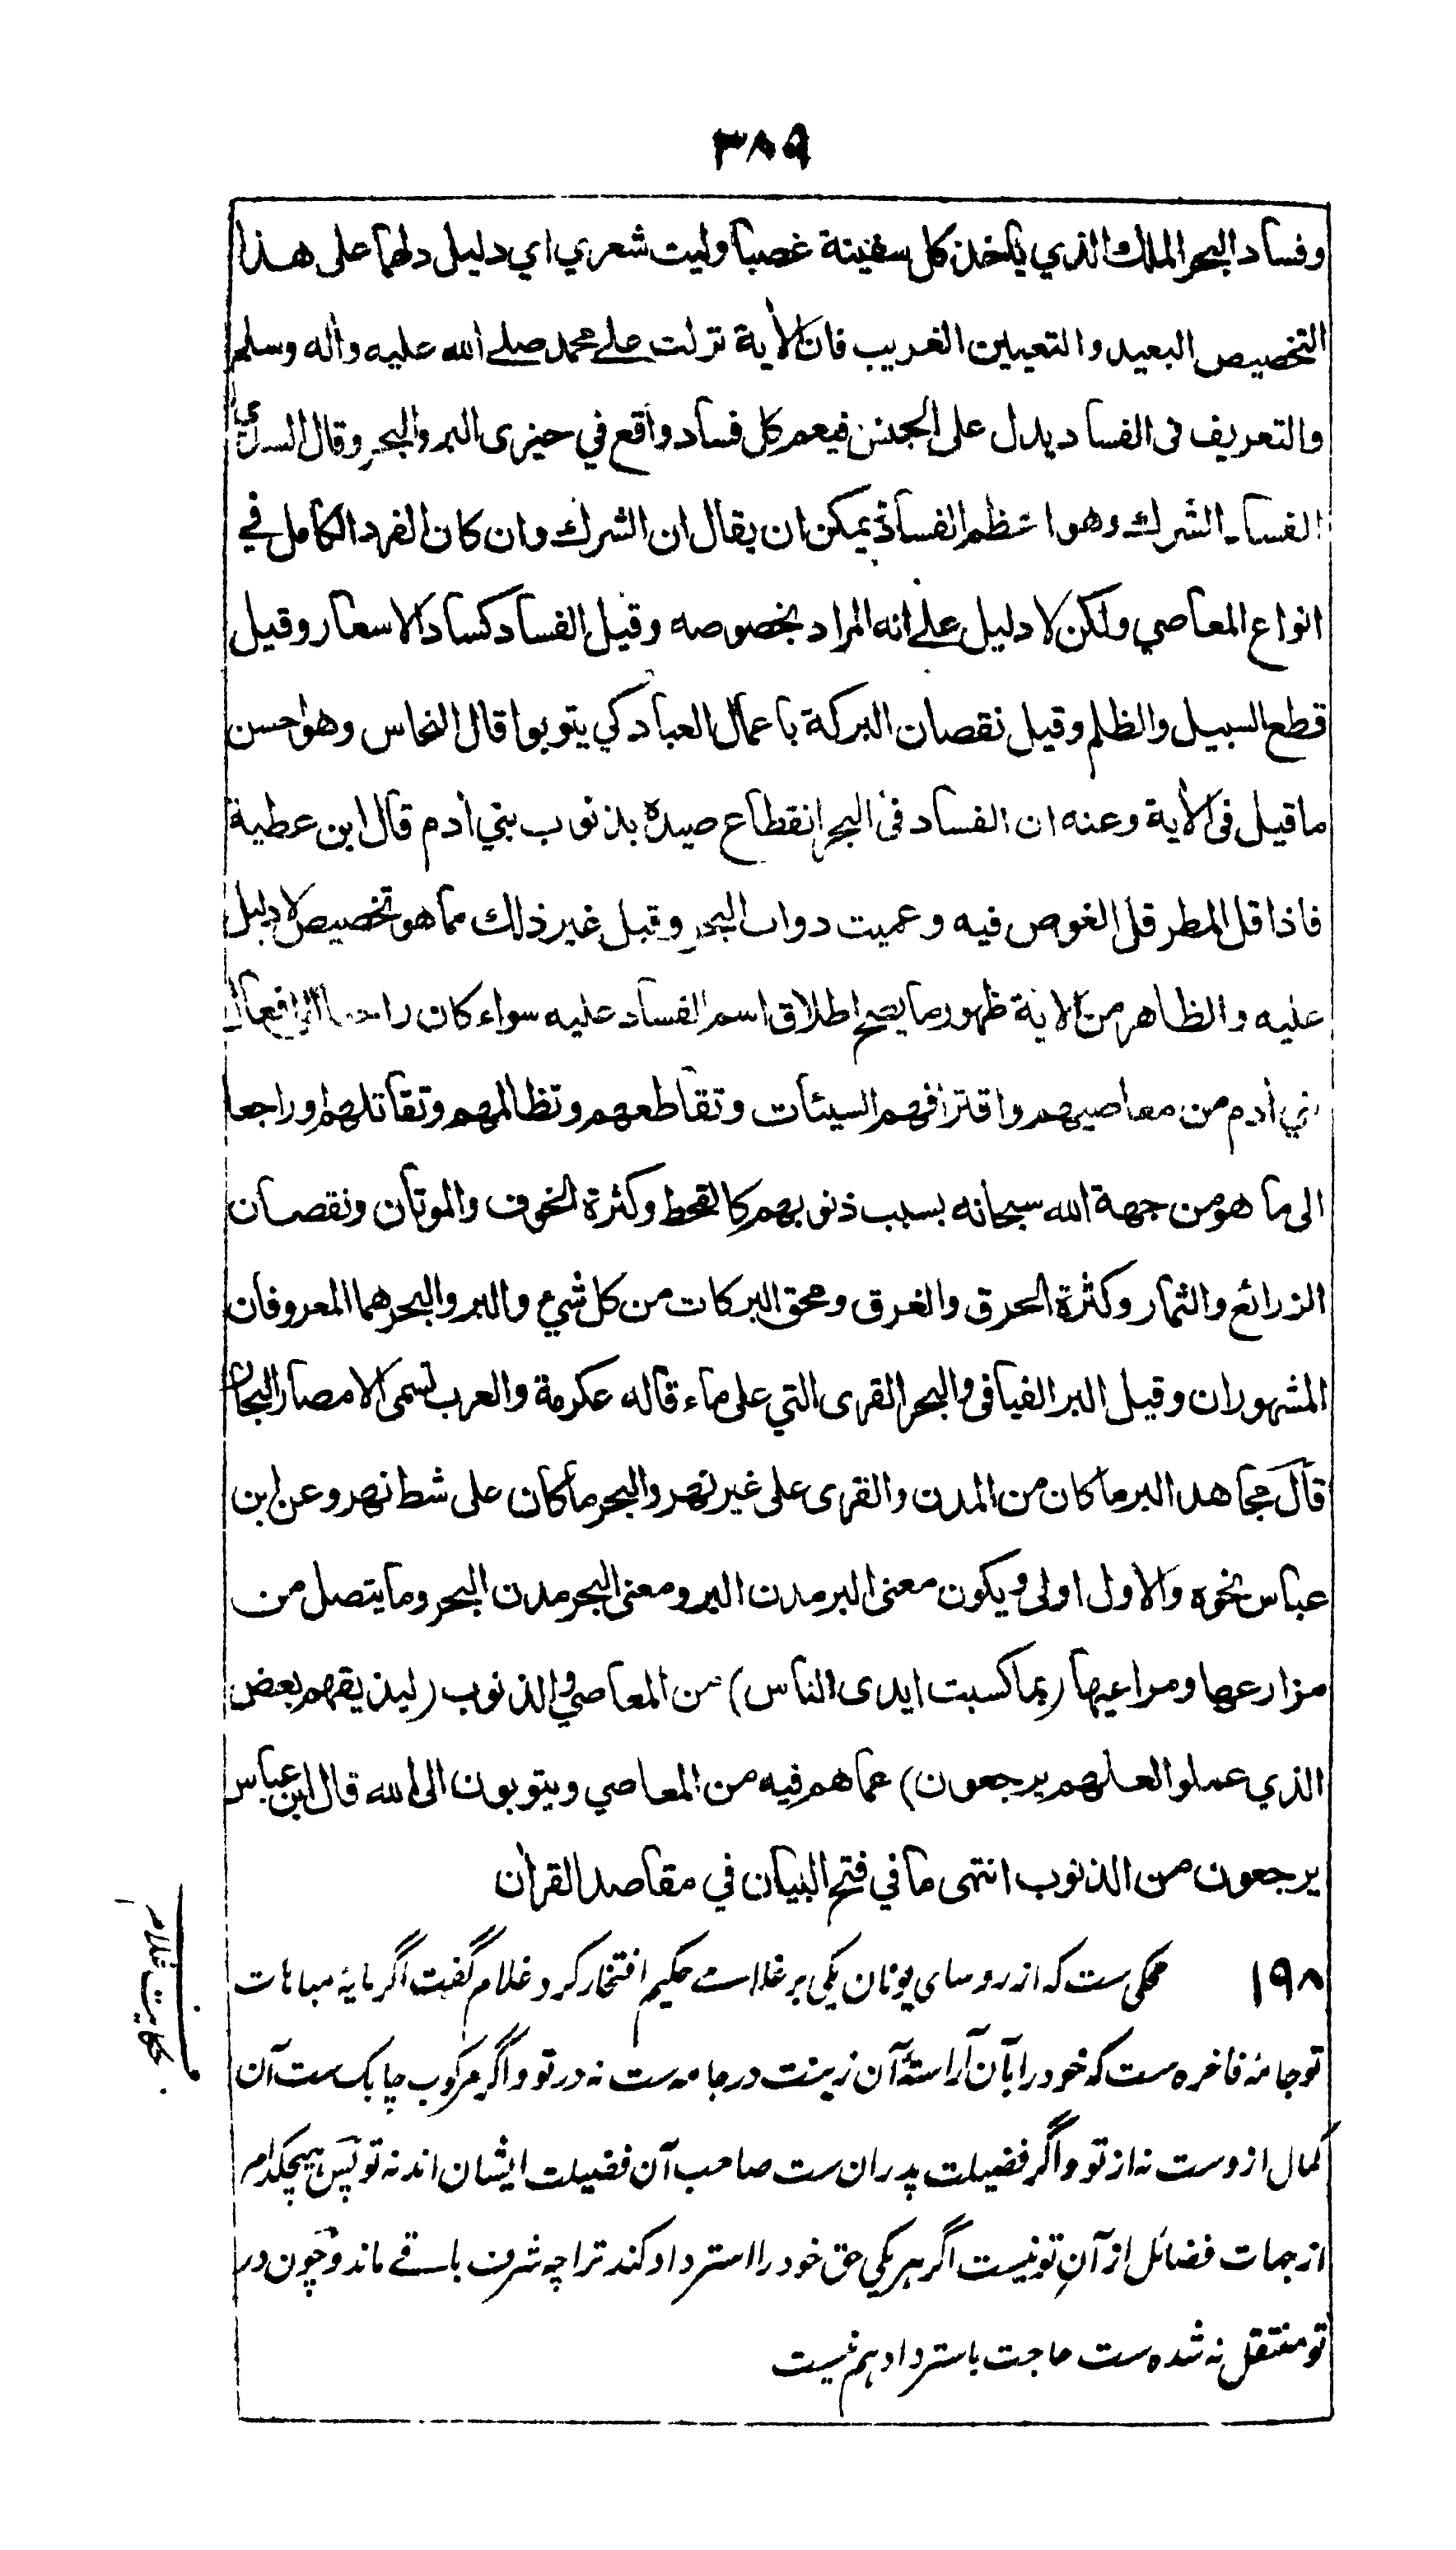 ٣٨٩
وفساد البحر الملك الذي يأخذ كل سفينة غصبا وليت شعري اي دليل دلهما على هذا
التخصيص البعيد والتعيين الغريب فان الأية نزلت على محمد صلى الله عليه وأله وسلم
والتعريف فى الفساد يدل على الجنس فيعم كل فساد واقع في حيزى البر والبحر وقال السدي
الفساد الشرك وهو اعظم الفساد ويمكن ان يقال ان الشرك وان كان الفرد الكامل في
انواع المعاصي ولكن لا دليل على انه المراد بخصوصه وقيل الفساد كساد الاسعار وقيل
قطع السبيل والظلم وقيل نقصان البركة باعمال العباد كي يتوبوا قال النحاس وهو احسن
ما قيل فى الأية وعنه ان الفساد فى البحر انقطاع صيده بذنوب بني أدم قال ابن عطية
فاذا قل المطر قل الغوص فيه وعميت دواب البحر وقيل غير ذلك مما هو تخصيص لا دليل
عليه والظاهر من الأية ظهور ما يصح اطلاق اسم الفساد عليه سواء كان راجعا الى افعال
بني أدم من معاصيهم واقترافهم السيئات وتقاطعهم وتظالمهم وتقاتلهم او راجعا
الى ما هو من جهة الله سبحانه بسبب ذنوبهم كالقحط وكثرة الخوف والموتان ونقصان
الزرائع والثمار وكثرة الحرق والغرق ومحق البركات من كل شيء والبر والبحر هما المعروفان
المشهوران وقيل البر الفيافى والبحر القرى التي على ماء قاله عكرمة والعرب تسمى الامصار البحار
قال مجاهد البر ما كان من المدن والقرى على غير نهر والبحر ما كان على شط نهر وعن ابن
عباس نحوه والاول اولى ويكون معنى البر مدن البر ومعنى البحر مدن البحر وما يتصل من
مزارعها ومراعيها (بما كسبت ايدى الناس) من المعاصي والذنوب (ليذيقهم بعض
الذي عملوا لعلهم يرجعون) عما هم فيه من المعاصي ويتوبون الى الله قال ابن عباس
يرجعون من الذنوب انتهى ما في فتح البيان في مقاصد القرأن
١٩٨ محكى ست كه از روساى يونان يكى بر غلام حكيم افتخار كرد غلام گفت اگر مايۀ مباهات
تو جامۀ فاخره ست كه خود را بآن آراستۀ آن زينت در جامه ست نه در تو و اگر مركوب چابك ست آن
كمال از وست نه از تو و اگر فضيلت پدران ست صاحب آن فضيلت ايشان اند نه تو پس هيچكدام
از جهات فضائل از آنِ تو نيست اگر هر يكى حق خود را استرداد كند ترا چه شرف باقے ماند و چون در
تو منتقل نه شده ست حاجت باسترداد هم نيست
حكايت غلام